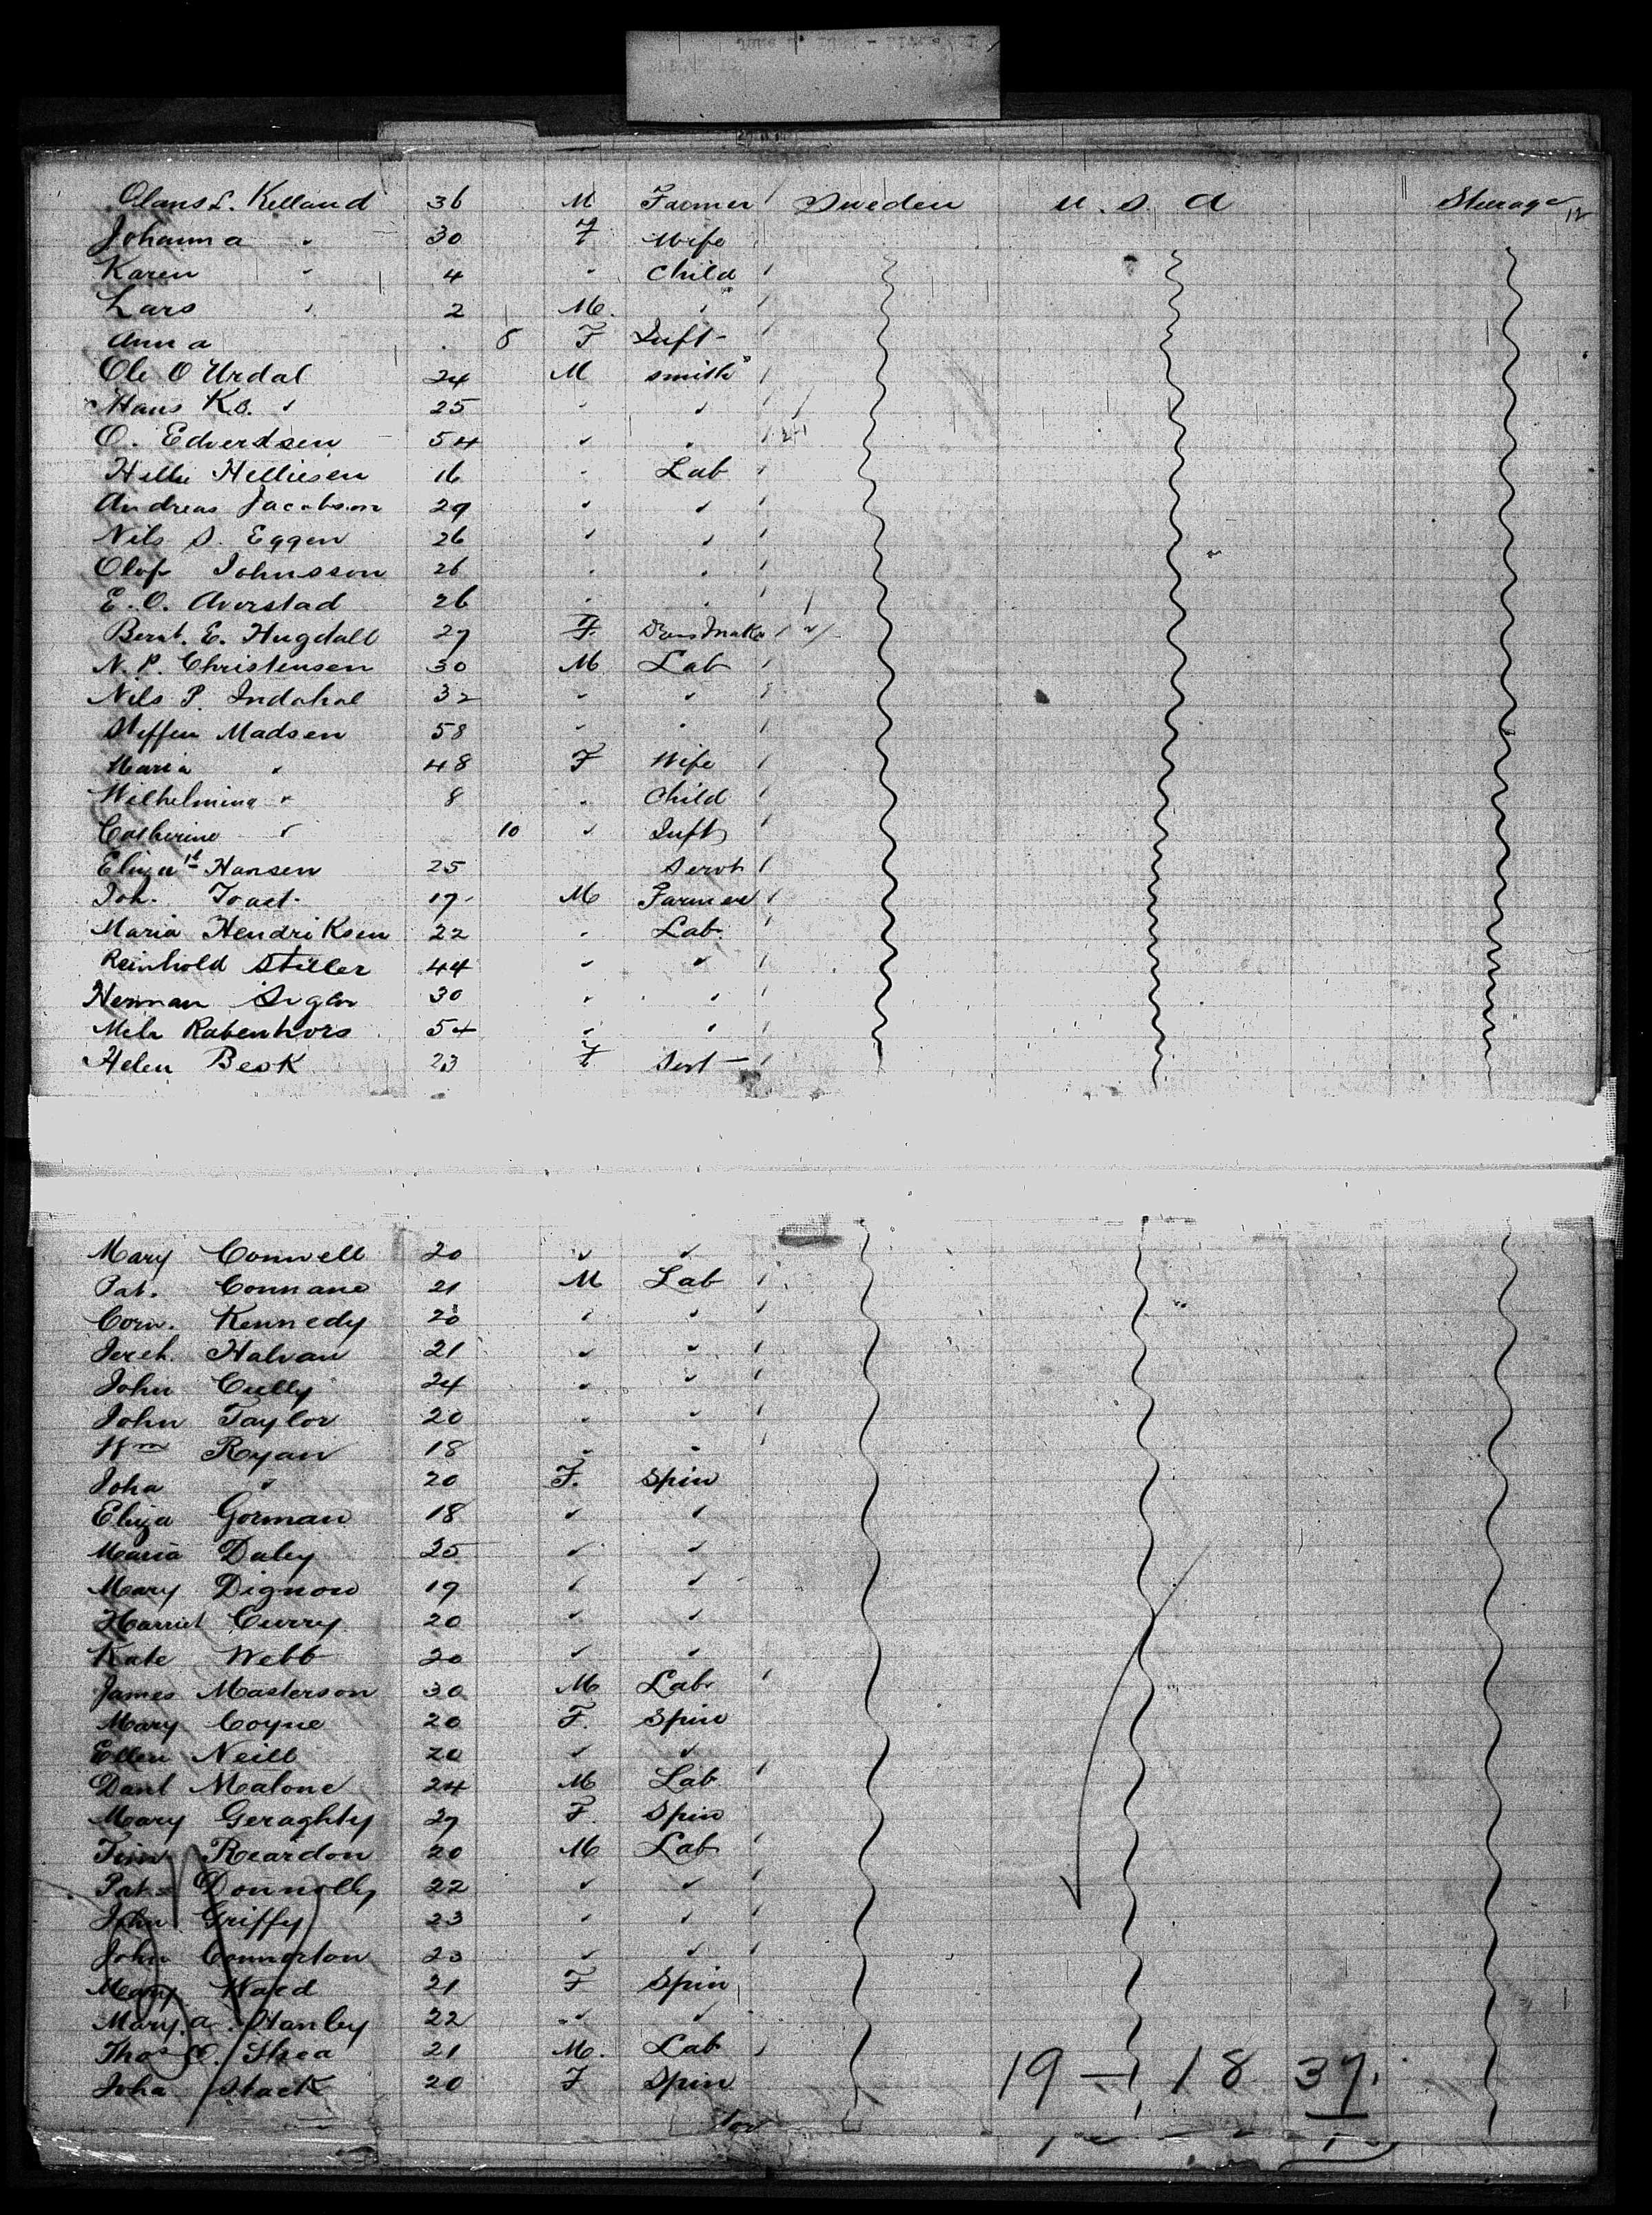 Olaus L. Kelland 36 M Farmer Sweden U.S.A Steerage
Johanna " 30 F Wife
Karen " 4 " Child
Lars " 2 M "
Anna 8 F Inft
Ole O Urdal 24 M Smith
Hans K.O. " 25 " "
O. Edverdsen 54 " "
Hellie Helliesen 16 " Lab
Andreas Jacobson 29 " "
Nils S. Eggen 26 " "
Olof Johnsson 26 " "
E. O. Averstad 26 " "
Bernt. E. Hugdall 27 F. DressMaker
N. P. Christensen 30 M Lab
Nils P. Indahal 32 " "
Steffen Madsen 58 " "
Maria " 48 F Wife
Wilhelmina " 8 " Child
Catherine " 10 " Inft
Eliza Hansen 25 Servt
Joh. Toact. 19 M Farmer
Maria Hendriksen 22 " Lab
Reinhold Stiller 44 " "
Herman 30 " "
Rabenhors 54 " "
Helen Beck 23 F Sert
Mary Connell 20 " "
Pat. Connane 21 M Lab
Corn. Kennedy 20 " "
Jereh. Halvan 21 " "
John Cully 24 " "
John Taylor 20 " "
Wm Ryan 18 " "
Joha " 20 F. Spin
Eliza Gorman 18 " "
Maria Daley 25 " "
Mary Dignow 19 " "
Harriet Curry 20 " "
Kate Webb 20 " "
James Masterson 30 M Lab
Mary Coyne 20 F. Spin
Ellen Neill 20 " "
Danl Malone 24 M Lab
Mary Geraghty 27 F. Spin
Tim Reardon 20 M Lab
Pat. Donnolly 22 " "
John Griffy 23 " "
John Connorton 23 " "
Mary Ward 21 F Spin
Mary. A. Hanley 22 " "
Thos O. Shea 21 M. Lab
Joha Stack 20 F Spin
19 — 18 37.